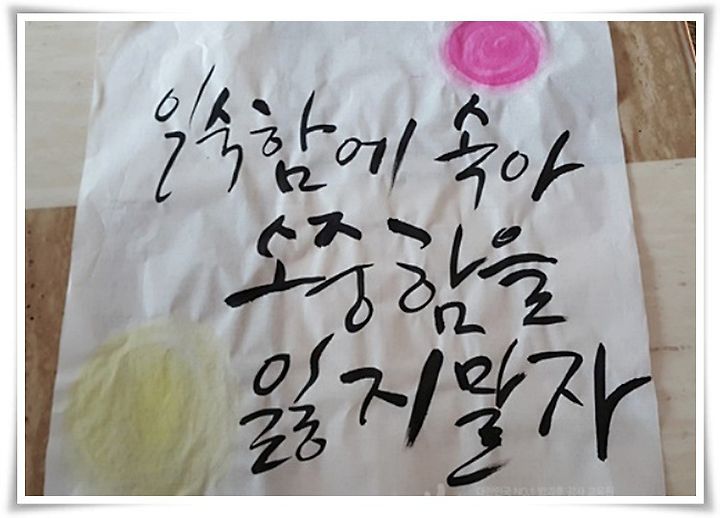 익숙함에 속아
소중함을
잃지말자